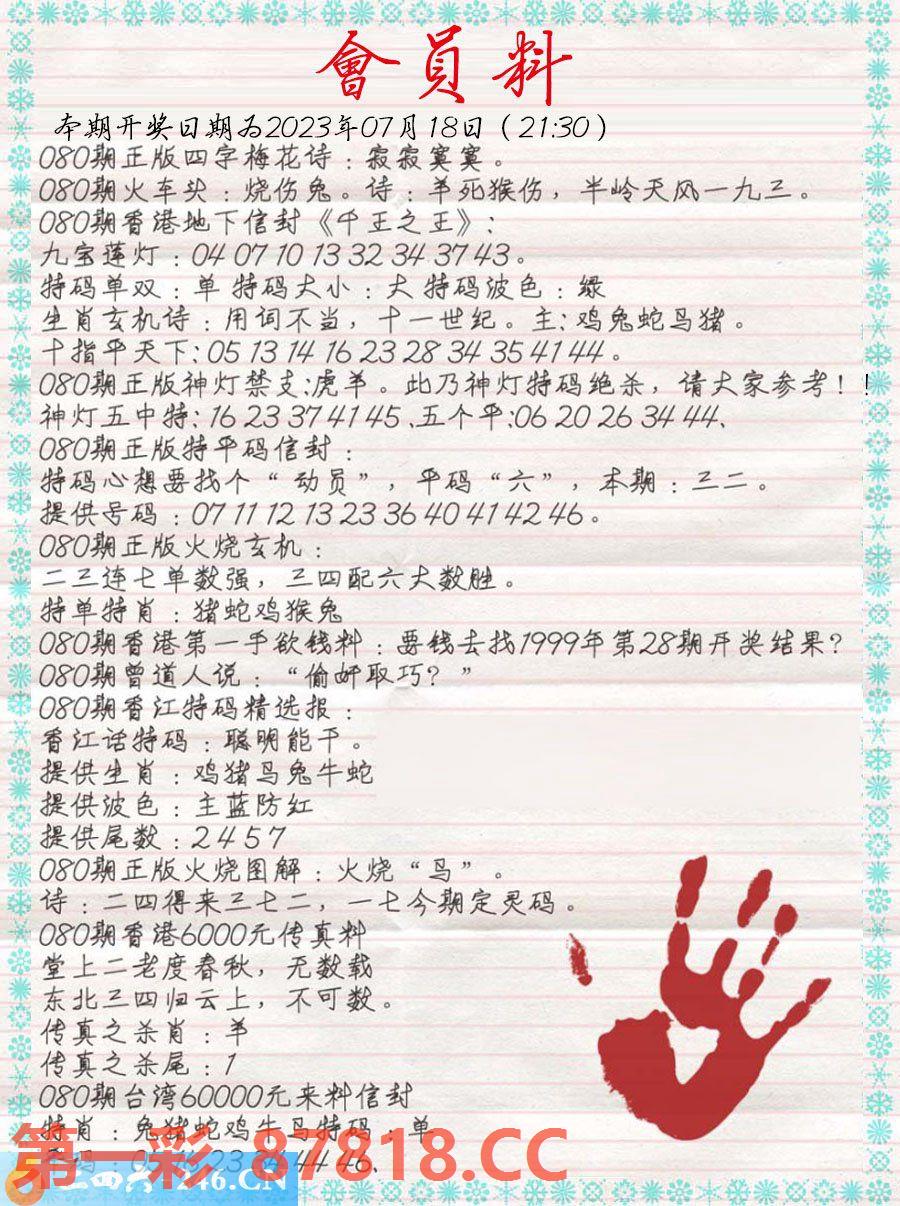 會員料
本期开奖日期为2023年07月18日（21:30）
080期正版四字梅花诗：寂寂寞寞。
080期火车头：烧伤兔。诗：羊死猴伤，半岭天风一九三。
080期香港地下信封《千王之王》：
九宝莲灯：04 07 10 13 32 34 37 43。
特码单双：单 特码大小：大 特码波色：绿
生肖玄机诗：用词不当，十一世纪。主：鸡兔蛇马猪。
十指平天下：05 13 14 16 23 28 34 35 41 44。
080期正版神灯禁支:虎羊。此乃神灯特码绝杀，请大家参考！！
神灯五中特：16 23 37 41 45、五个平:06 20 26 34 44、
080期正版特平码信封：
特码心想要找个“动员”，平码“六”，本期：三二。
提供号码：07 11 12 13 23 36 40 41 42 46。
080期正版火烧玄机：
二三连七单数强，三四配六大数胜。
特单特肖：猪蛇鸡猴兔
080期香港第一手欲钱料：要钱去找1999年第28期开奖结果？
080期曾道人说：“偷奸取巧？”
080期香江特码精选报：
香江话特码：聪明能干。
提供生肖：鸡猪马兔牛蛇
提供波色：主蓝防红
提供尾数：2 4 5 7
080期正版火烧图解：火烧“马”。
诗：二四得来三七二，一七今期定灵码。
080期香港6000元传真料
堂上二老度春秋，无数载
东北三四归云上，不可数。
传真之杀肖：羊
传真之杀尾：1
080期台湾60000元来料信封
特肖：兔猪蛇鸡牛马特码：单
23 34 44 46、
第一彩 87818.CC
246.CN